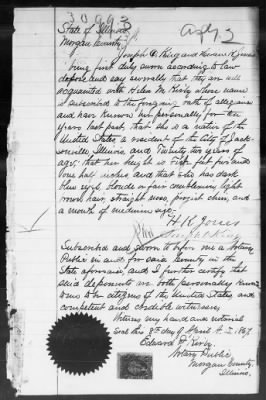 30993
Apl 3
State of Illinois
Morgan County
Joseph O. King and Horace K Jones
being first duly sworn according to law
depose and say severally that they are well
acquainted with Helen M. Kirby whose name
is subscribed to the foregoing oath of allegiance
and have known her personally for ten
years last past, that she is a native of the
United States, a resident of the City of Jack-
sonville, Illinois, and Twenty two years of
age; that her height is Five feet five and
one half inches and that she has dark
blue eyes, blonde or fair complexion, light
brown hair, straight nose, project chin, and
a mouth of medium size.
H K Jones
King
Subscribed and sworn to before me a Notary
Public in and for said County in the
State aforesaid, and I further certify that
said deponents are both personally known
to me to be citizens of the United States, and
competent and credible witnesses.
Witness my hand and notarial
seal this 3d day of April A.D. 1867
Edward P. Kirby
Notary Public
Morgan County
Illinois.